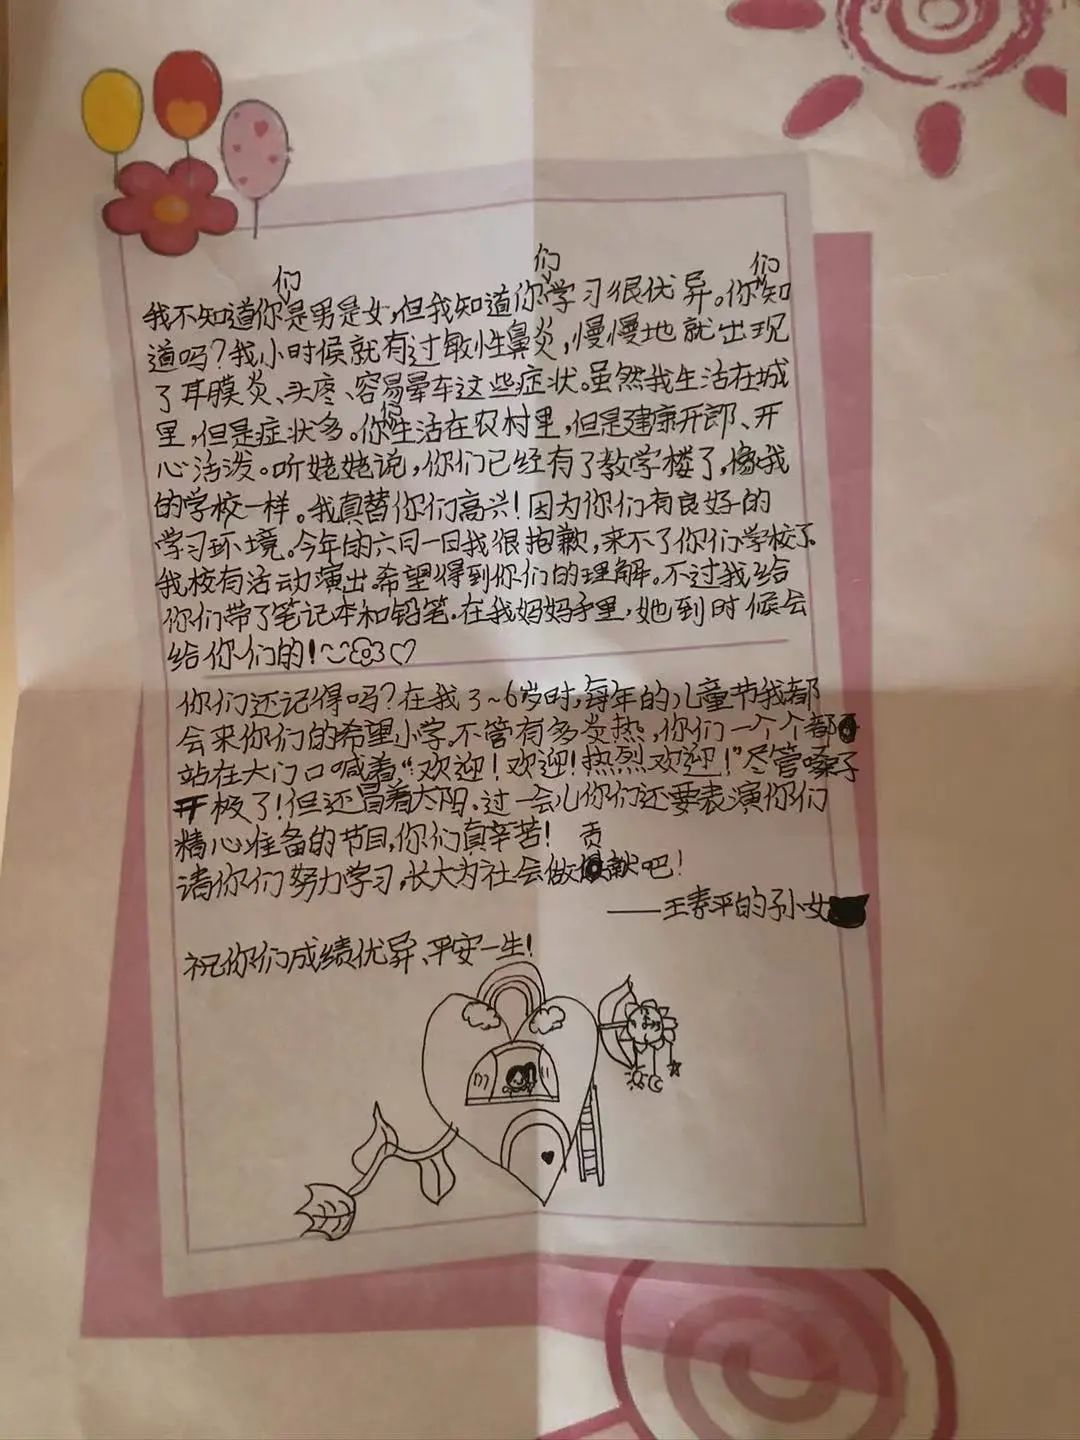 我不知道你们是男是女,但我知道你们学习很优异。你们知
道吗?我小时候就有过敏性鼻炎,慢慢地就出现
了耳膜炎、头疼、容易晕车这些症状。虽然我生活在城
里,但是症状多。你们生活在农村里,但是健康开郎、开
心活泼。听姥姥说,你们已经有了教学楼了,像我
的学校一样。我真替你们高兴!因为你们有良好的
学习环境。今年的六月一日我很抱歉,来不了你们学校了。
我校有活动演出.希望得到你们的理解。不过我给
你们带了笔记本和铅笔.在我妈妈手里,她到时候会
给你们的!
你们还记得吗?在我3~6岁时,每年的儿童节我都
会来你们的希望小学.不管有多炎热,你们一个个都
站在大门口喊着,“欢迎!欢迎!热烈欢迎!”尽管嗓子
极了!但还冒着太阳、过一会儿你们还要表演你们
精心准备的节目,你们真辛苦!
请你们努力学习,长大为社会做贡献吧!
——王素平的孙女
祝你们成绩优异、平安一生!